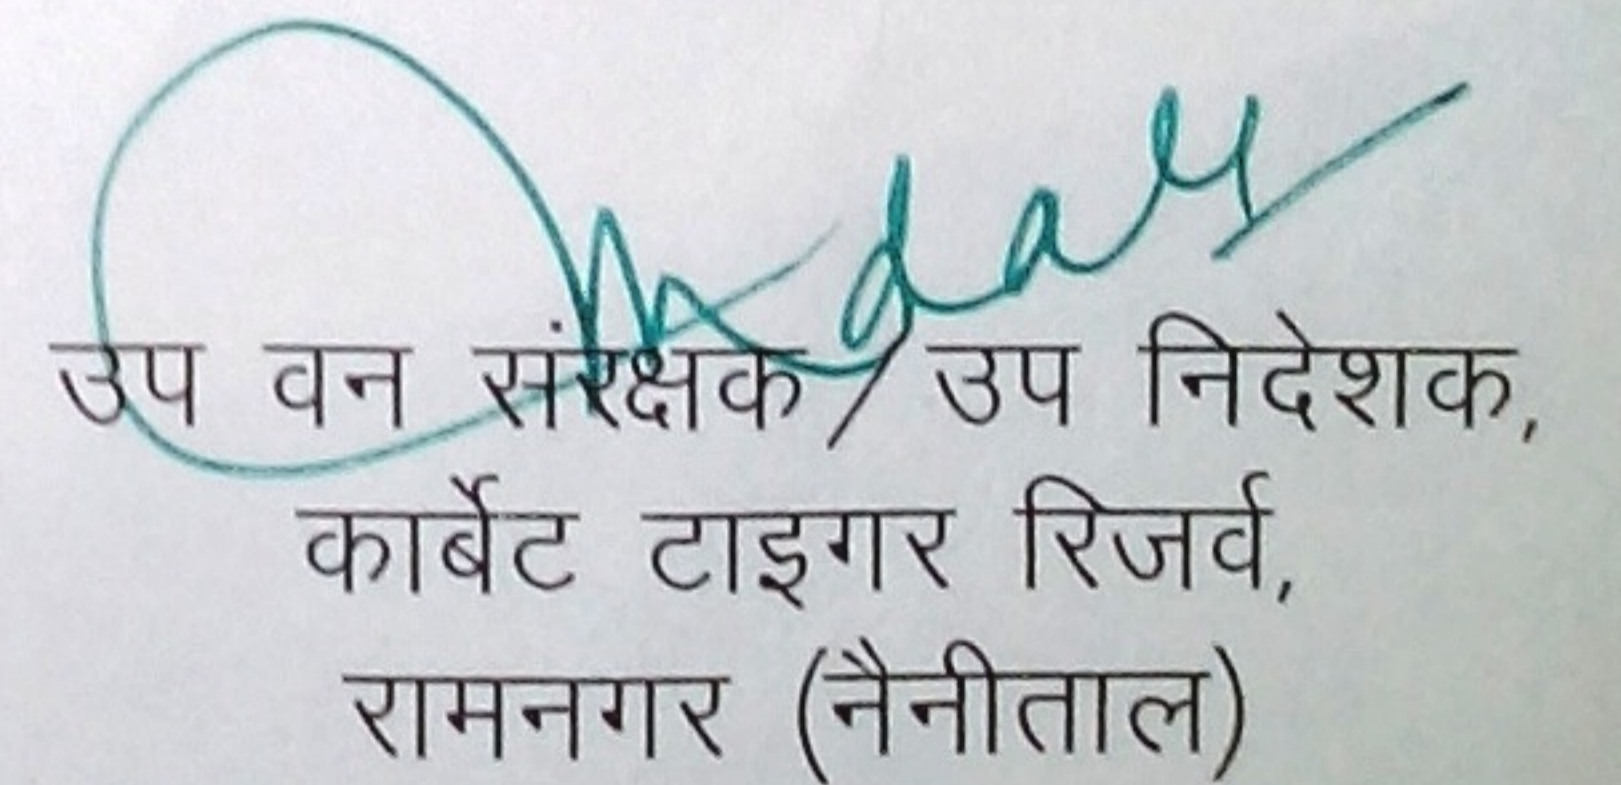 उप वन संरक्षक / उप निदेशक,
कार्बेट टाइगर रिजर्व,
रामनगर (नैनीताल)